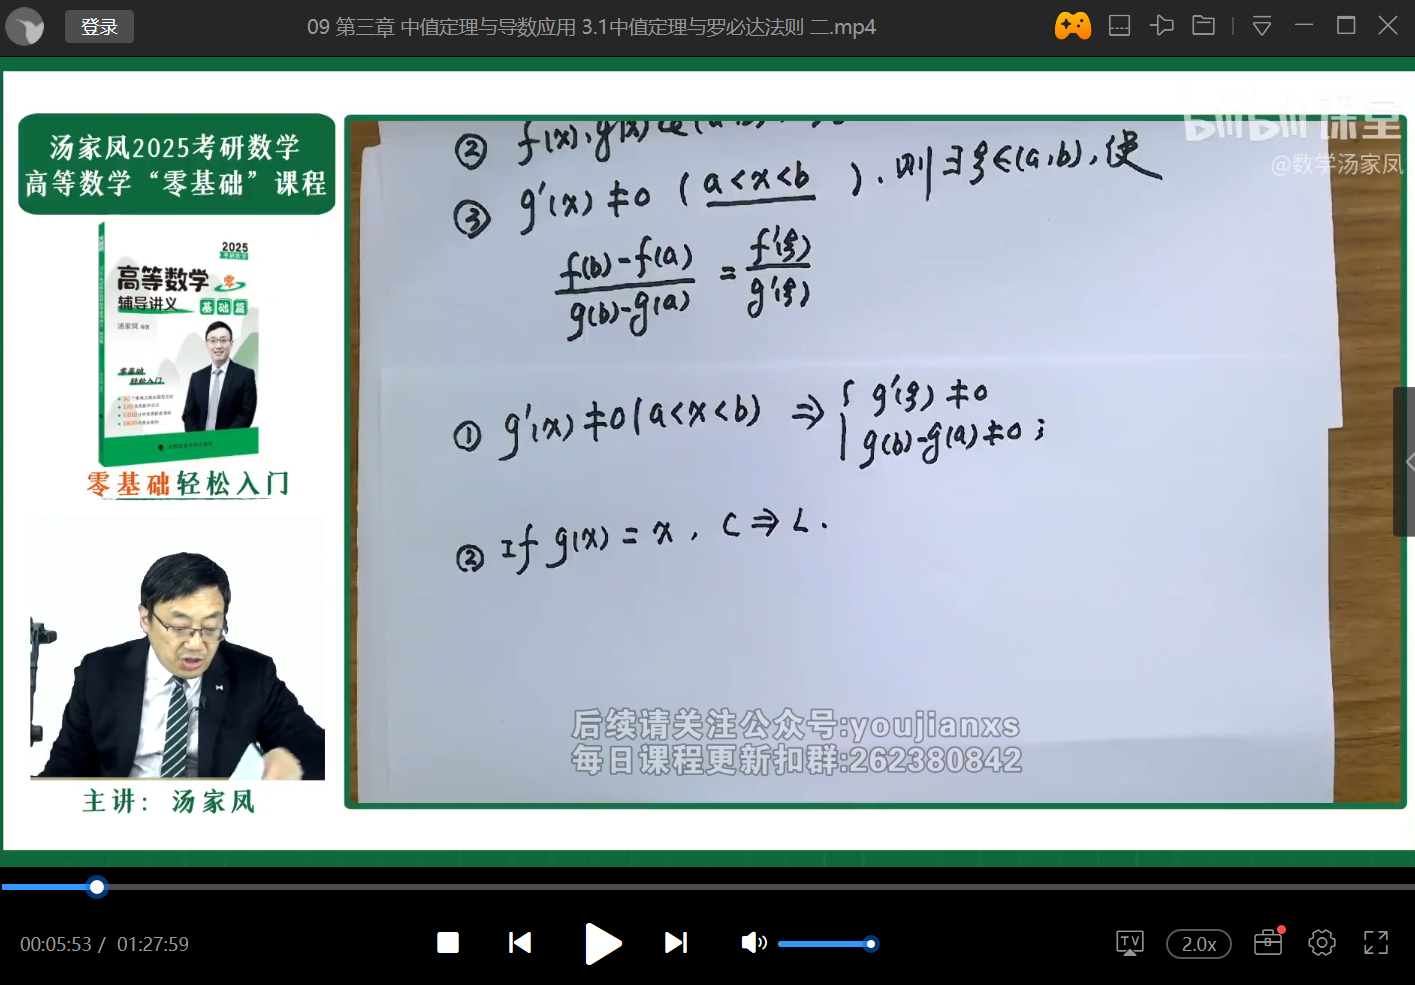 登录
09 第三章 中值定理与导数应用 3.1中值定理与罗必达法则 二.mp4
汤家凤2025考研数学
高等数学“零基础”课程
2025
考研数学
高等数学 零
辅导讲义 基础篇
汤家凤 编著
零基础
轻松入门
零基础轻松入门
主讲：汤家凤
bilibili 课堂
@数学汤家凤
② f(x),g(x)在(a
③ g'(x)≠0 (a<x<b). 则∃ξ∈(a,b),使
f(b)-f(a) / g(b)-g(a) = f'(ξ) / g'(ξ)
① g'(x)≠0(a<x<b) ⇒ { g'(ξ)≠0
g(b)-g(a)≠0;
② If g(x)=x, C⇒L.
后续请关注公众号:youjianxs
每日课程更新扣群:262380842
00:05:53 / 01:27:59
TV
2.0x